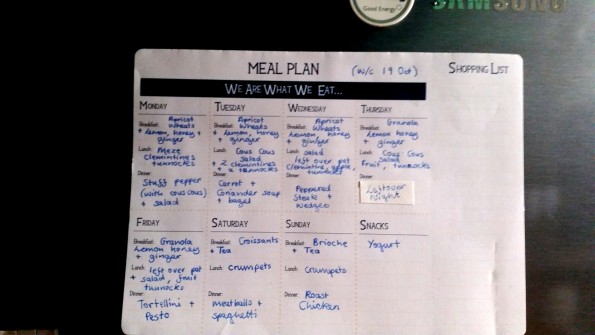 Good Energy
SAMSUNG
MEAL PLAN
(w/c 19 Oct)
SHOPPING LIST
WE ARE WHAT WE EAT...
MONDAY
Breakfast: Apricot
Wheats
+ lemon, honey +
ginger
Lunch: Meze
clementines
tunnocks
Dinner:
Stuff pepper
(with couscous)
+ salad
TUESDAY
Breakfast: Apricot
Wheats
+ lemon, honey +
ginger
Lunch: Cous Cous
Salad
+ 2 clementines
+ 2 tunnocks
Dinner:
Carrot +
Coriander soup
+ bagel
WEDNESDAY
Breakfast: Apricot
Wheats
lemon, honey
+ ginger
Lunch: salad
left over pat
clementine, apple,
tunnocks
Dinner:
Peppered
Steak +
Wedges
THURSDAY
Breakfast: Granola
Lemon honey
+ ginger
Lunch: Cous Cous
Salad
fruit, tunnocks
Dinner:
Leftover
Night
FRIDAY
Breakfast: Granola
Lemon honey
+ ginger
Lunch: left over pat
+ salad, fruit
tunnocks
Dinner:
Tortellini +
Pesto
SATURDAY
Breakfast: Croissants
+ Tea
Lunch: crumpets
Dinner:
meatballs +
spaghetti
SUNDAY
Breakfast: Brioche
+ Tea
Lunch: Crumpets
Dinner: Roast
Chicken
SNACKS
Yogurt